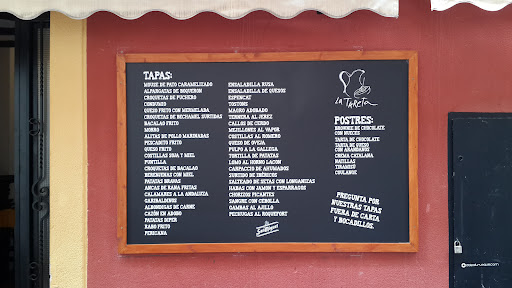 TAPAS:
MOUSE DE PATO CARAMELIZADO
ALPARGATAS DE BOQUERON
CROQUETAS DE PUCHERO
CONSUMIO
QUESO FRITO CON MERMELADA
CROQUETAS DE BECHAMEL SURTIDAS
BACALAO FRITO
MORRO
ALITAS DE POLLO MARINADAS
PESCADITO FRITO
QUESO FRITO
COSTILLAS SOJA Y MIEL
PUNTILLA
CROQUETAS DE BACALAO
BERENJENAS CON MIEL
PATATAS BRAVAS
ANCAS DE RANA FRITAS
CALAMARES A LA ANDALUZA
GARIBALDINOS
ALBONDIGAS DE CARNE
CAZÓN EN ADOBO
PATATAS SUPER
RABO FRITO
PERICANA
ENSALADILLA RUSA
ENSALADILLA DE QUESOS
ESPENCAT
TOSTONS
MAGRO ADOBADO
TERNERA AL JEREZ
CALLOS DE CERDO
MEJILLONES AL VAPOR
COSTILLAS AL ROMERO
QUESO DE OVEJA
PULPO A LA GALLEGA
TORTILLA DE PATATAS
LOMO AL HORNO LACON
CARPACCIO DE AHUMADOS
SURTIDO DE IBÉRICOS
SALTEADO DE SETAS CON LONGANIZAS
HABAS CON JAMON Y ESPARRAGOS
CHORIZOS PICANTES
SANGRE CON CEBOLLA
GAMBAS AL AJILLO
PECHUGAS AL ROQUEFORT
San Miguel
LA TARETA
POSTRES:
BROWNIE DE CHOCOLATE
CON NUECES
TARTA DE CHOCOLATE
TARTA DE QUESO
CON ARANDANOS
CREMA CATALANA
NATILLAS
TIRAMISÚ
COULANGE
PREGUNTA POR
NUESTRAS TAPAS
FUERA DE CARTA
Y BOCADILLOS.